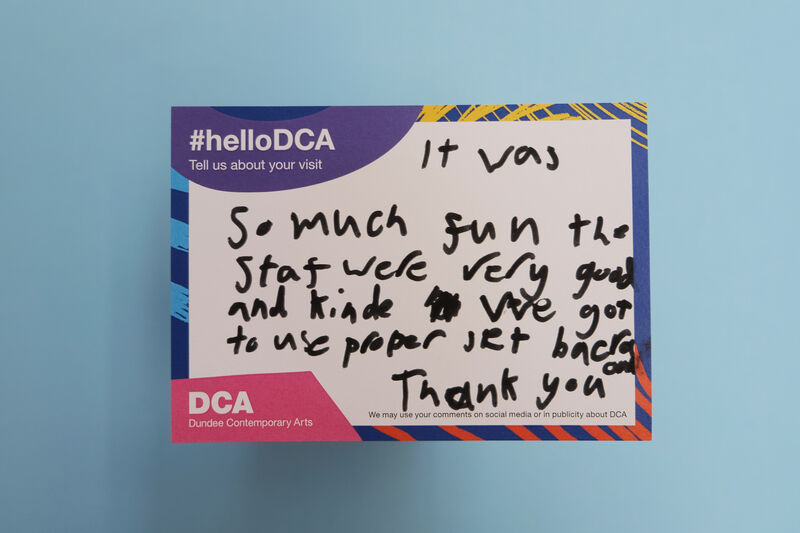 #helloDCA
Tell us about your visit
It was
So much fun the
Staf were very good
and Kinde we got
to use proper set backro
and
Thank you
We may use your comments on social media or in publicity about DCA
DCA
Dundee Contemporary Arts